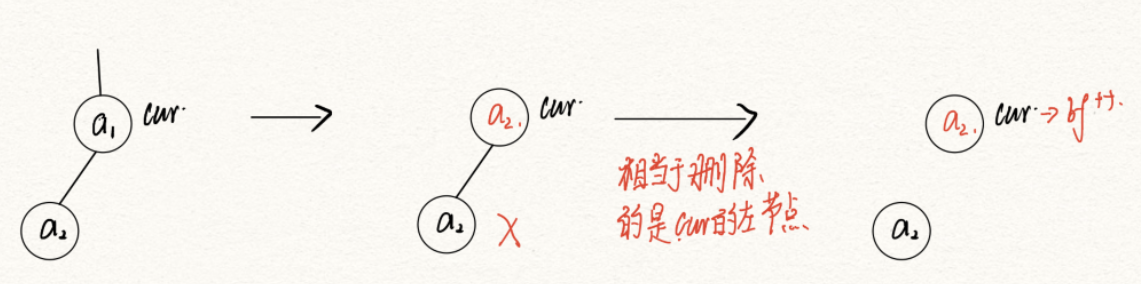 a₁ cur.
a₂
a₂. cur.
a₂ X
相当于删除、
的是cur的左节点
a₂. cur.→bf++.
a₂